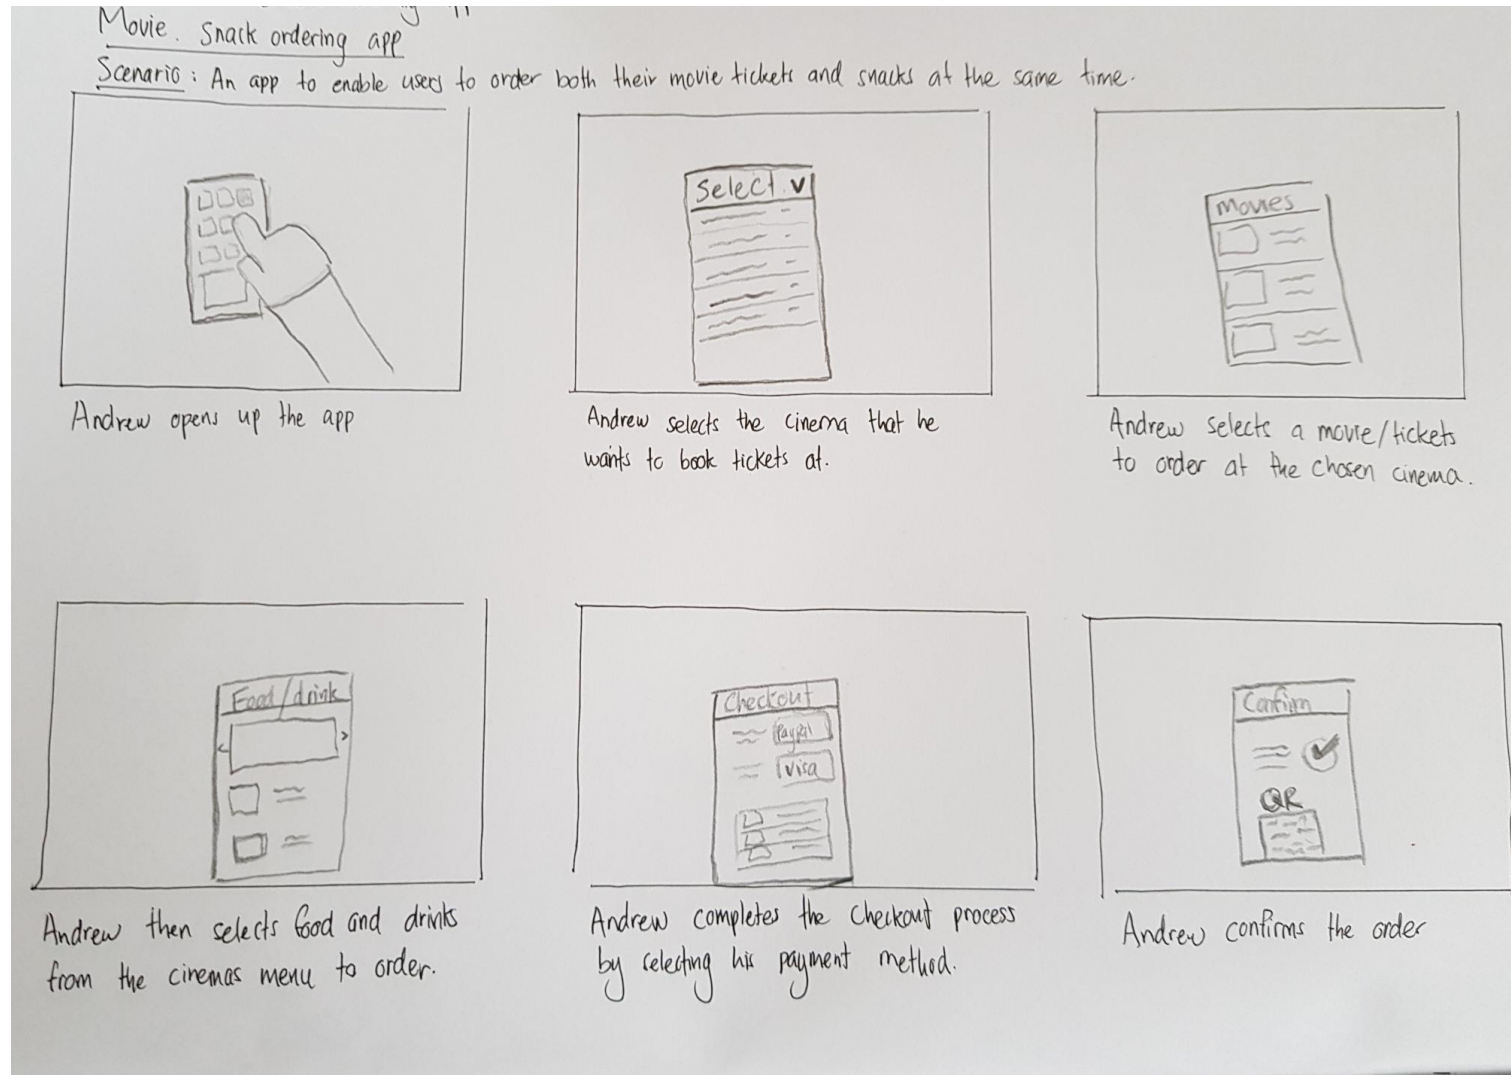 Movie. Snack ordering app
Scenario: An app to enable users to order both their movie tickets and snacks at the same time.
Select v
Movies
Andrew opens up the app
Andrew selects the cinema that he
wants to book tickets at.
Andrew selects a movie/tickets
to order at the chosen cinema.
Food/drink
<
>
Checkout
PayPal
Visa
Confirm
QR
Andrew then selects food and drinks
from the cinemas menu to order.
Andrew completes the checkout process
by selecting his payment method.
Andrew confirms the order